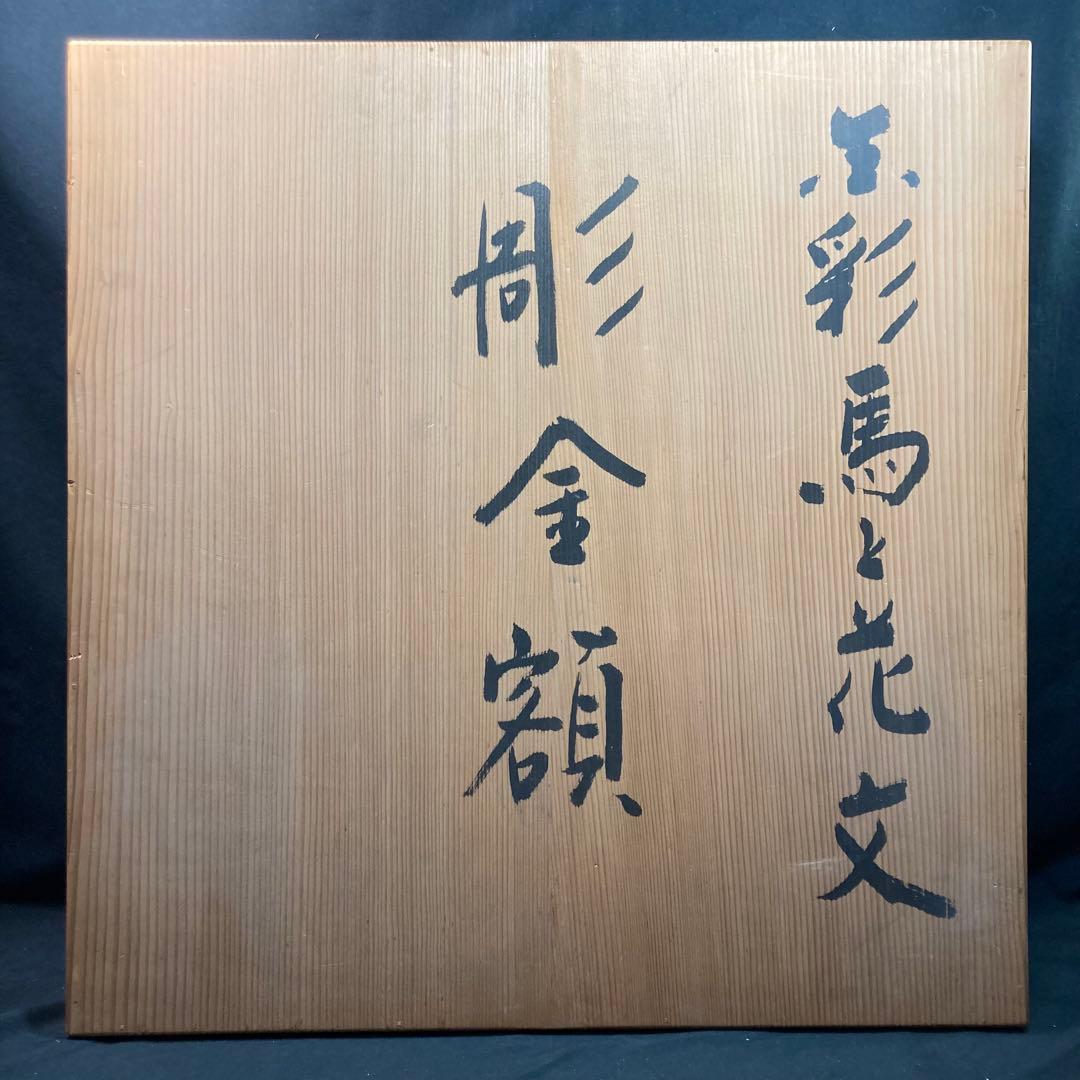 点彩馬と花文
彫金額